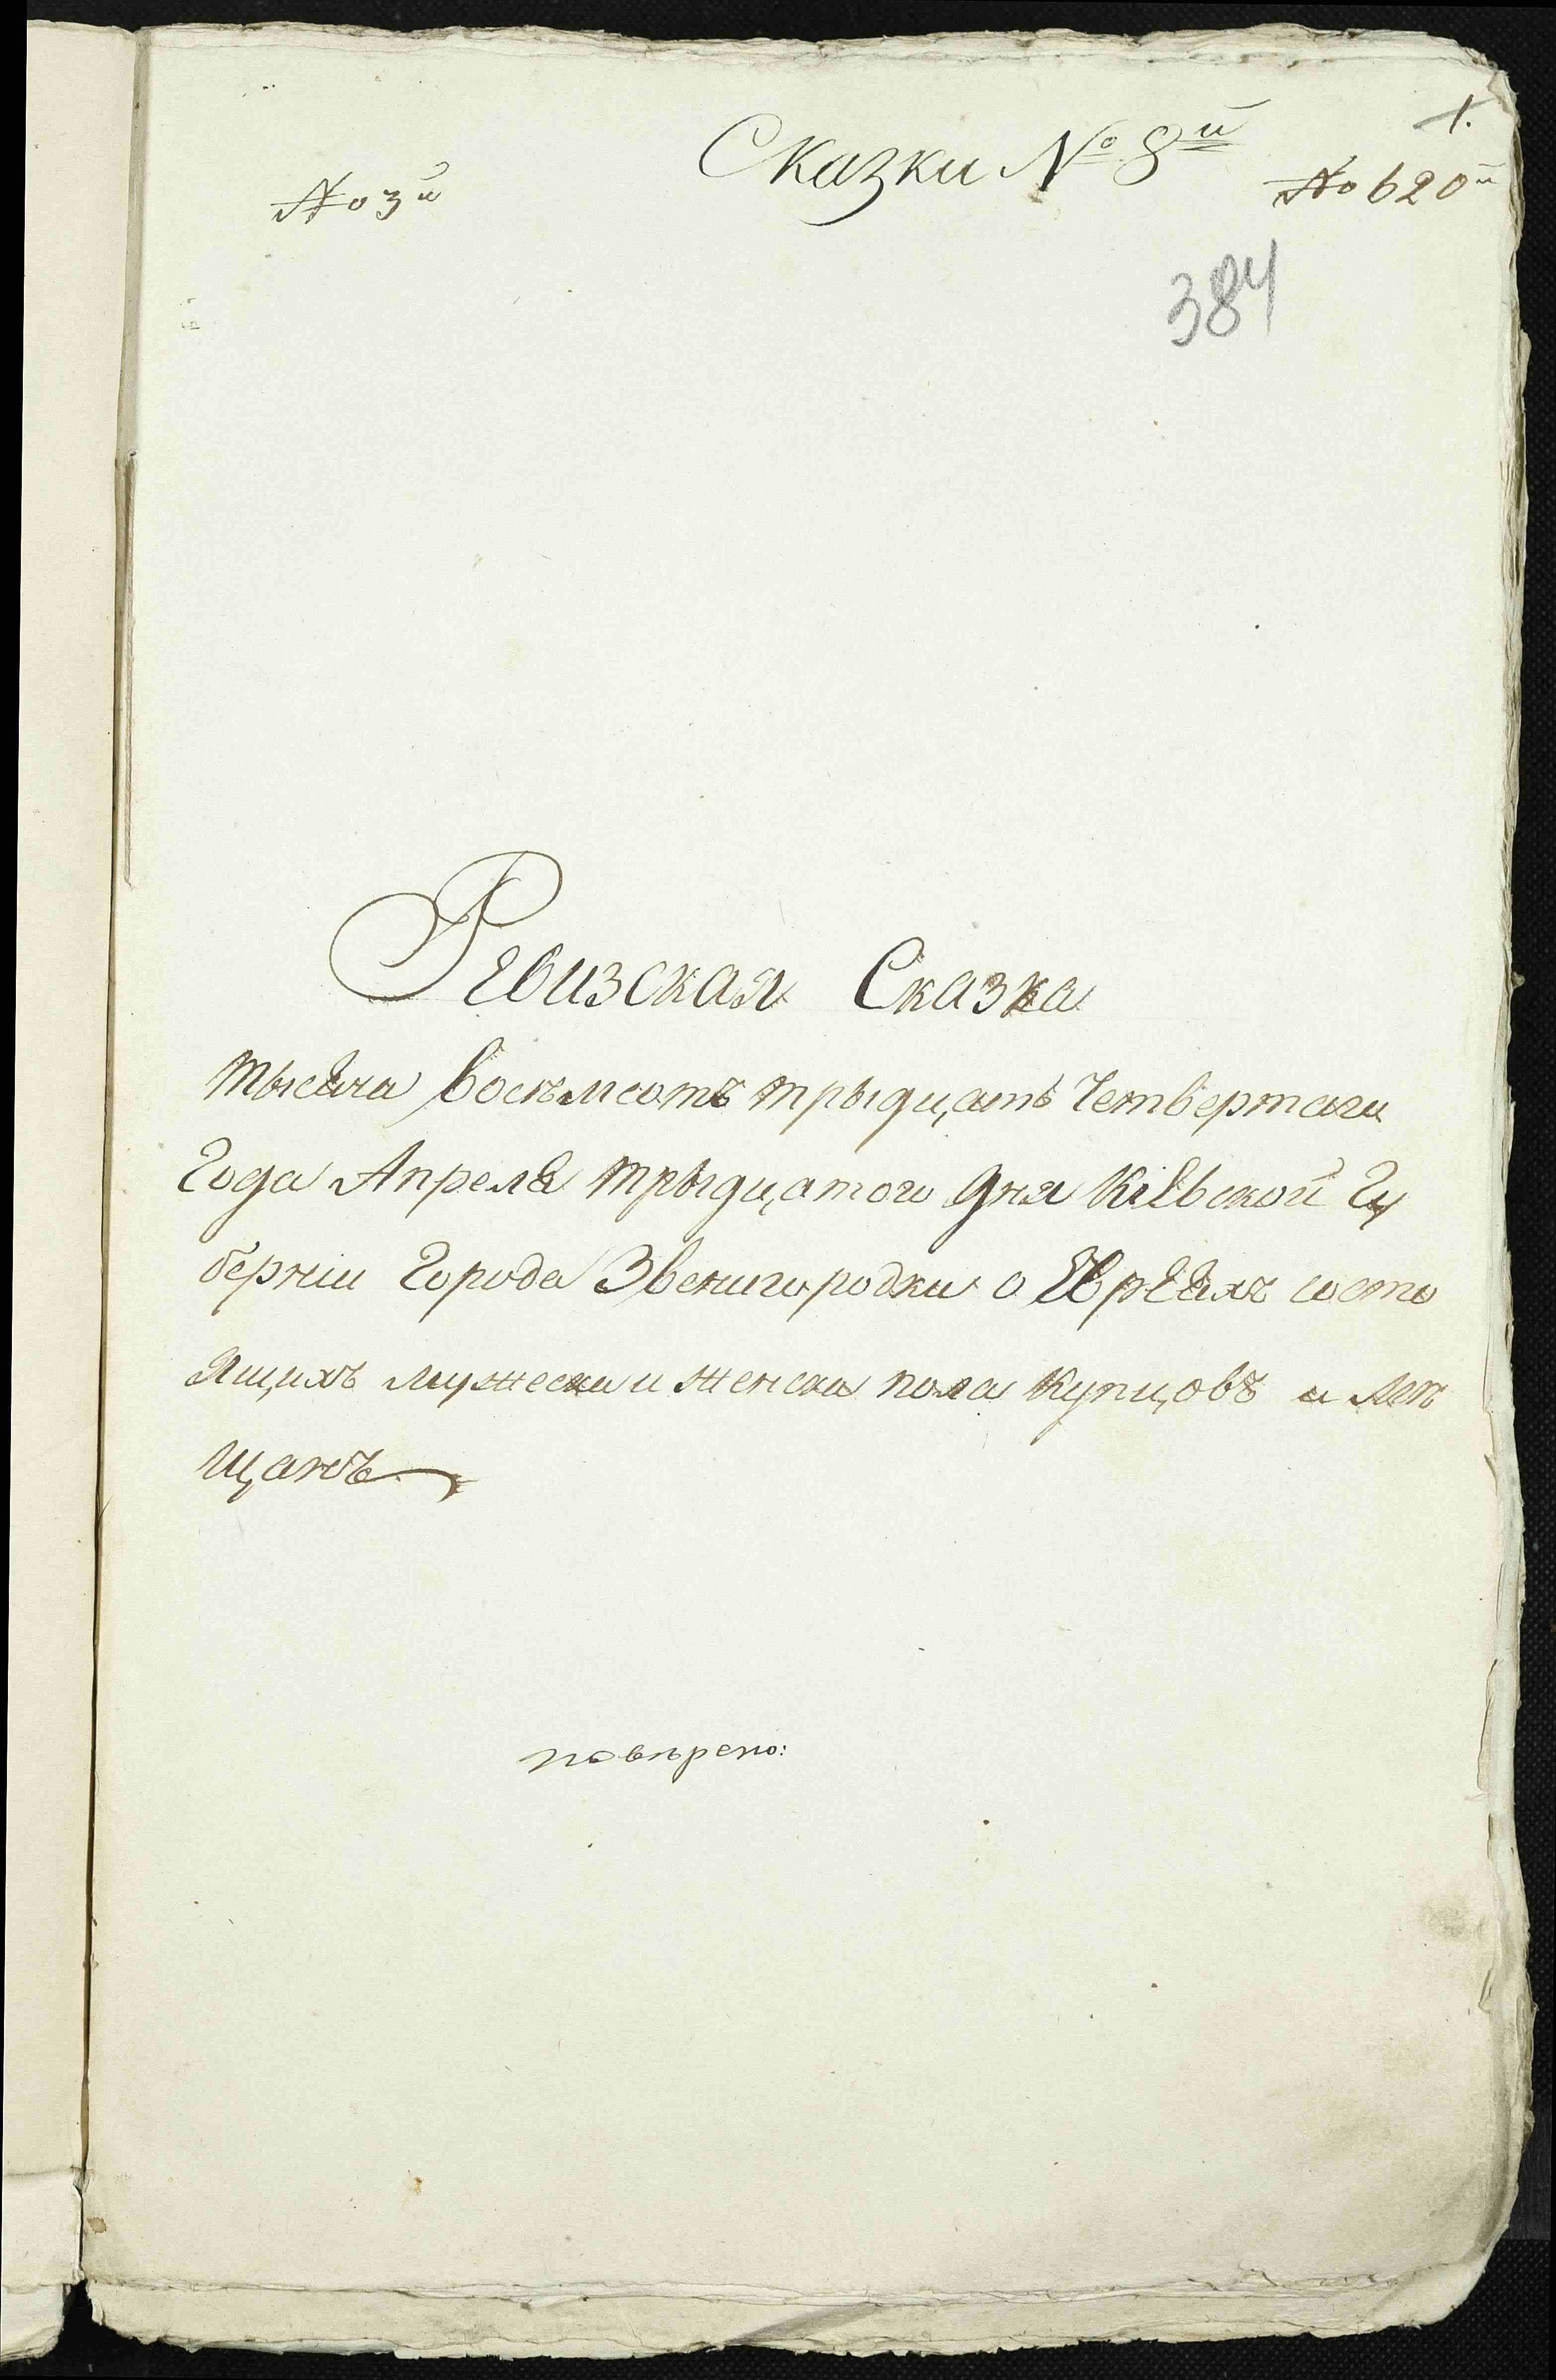 1.
Сказки № 8й
№ 3й
№ 620й
384
Ревизская Сказка
тысеча восемсотъ трыдцать Четвертаго
Года Апреля трыдцатого дня Кіевской Гу
берніи Города Звенигородки о Евреяхъ состо
ящихъ мужеска и женска пола купцовъ и мѣ
щанъ
повѣрено: